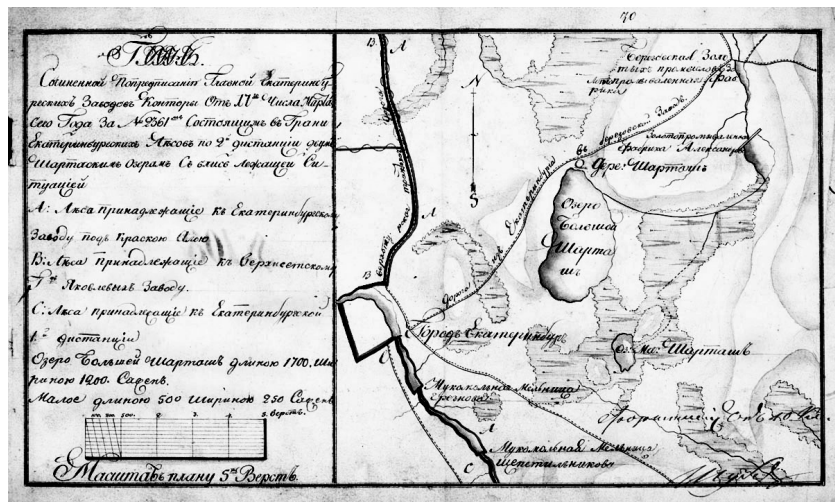 70
Планъ.
Сочиненной По предписанію Главной Екатеринбу
ргскихъ Заводовъ Конторы Отъ 17го Числа Марта
сего Года За № 2361мъ Состоящимъ въ Грани
Екатеринбургскихъ Лѣсовъ по 2й дистанціи
Шарташскимъ Озерамъ Съ близъ Лежащей Си
туаціей
А: Лѣса принадлежащіе къ Екатеринбургскому
Заводу подъ Краскою Алою
В: Лѣса принадлежащіе къ Верхнеетскому
Яковлевыхъ Заводу.
С: Лѣса принадлежащіе къ Екатеринбургской
1й дистанціи
Озеро Большей Шарташъ длиною 1700, Ши
риною 1200 Саженъ.
Малое длиною 500 шириною 250 Саженъ
500. 1. 2. 3. 4. 5. Верстъ.
Масштабъ плану 5ть Верстъ.
В А
N
S
Березовская Золо
тыхъ промысловъ
рика
Березовской Заводъ
Фабрика Александров
Дере: Шарташъ
Озеро
Большой
Шарта
шъ
А
В
Дорога изъ Екатеринбурга въ
Городъ Екатеринбургъ
Оз: Мал: Шарташъ
С
Мукомольная Мельница
Мукомольная Мельница
Щепетильникова
С